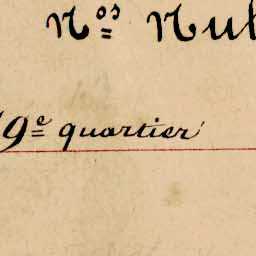 Nos Nu
9e quartier